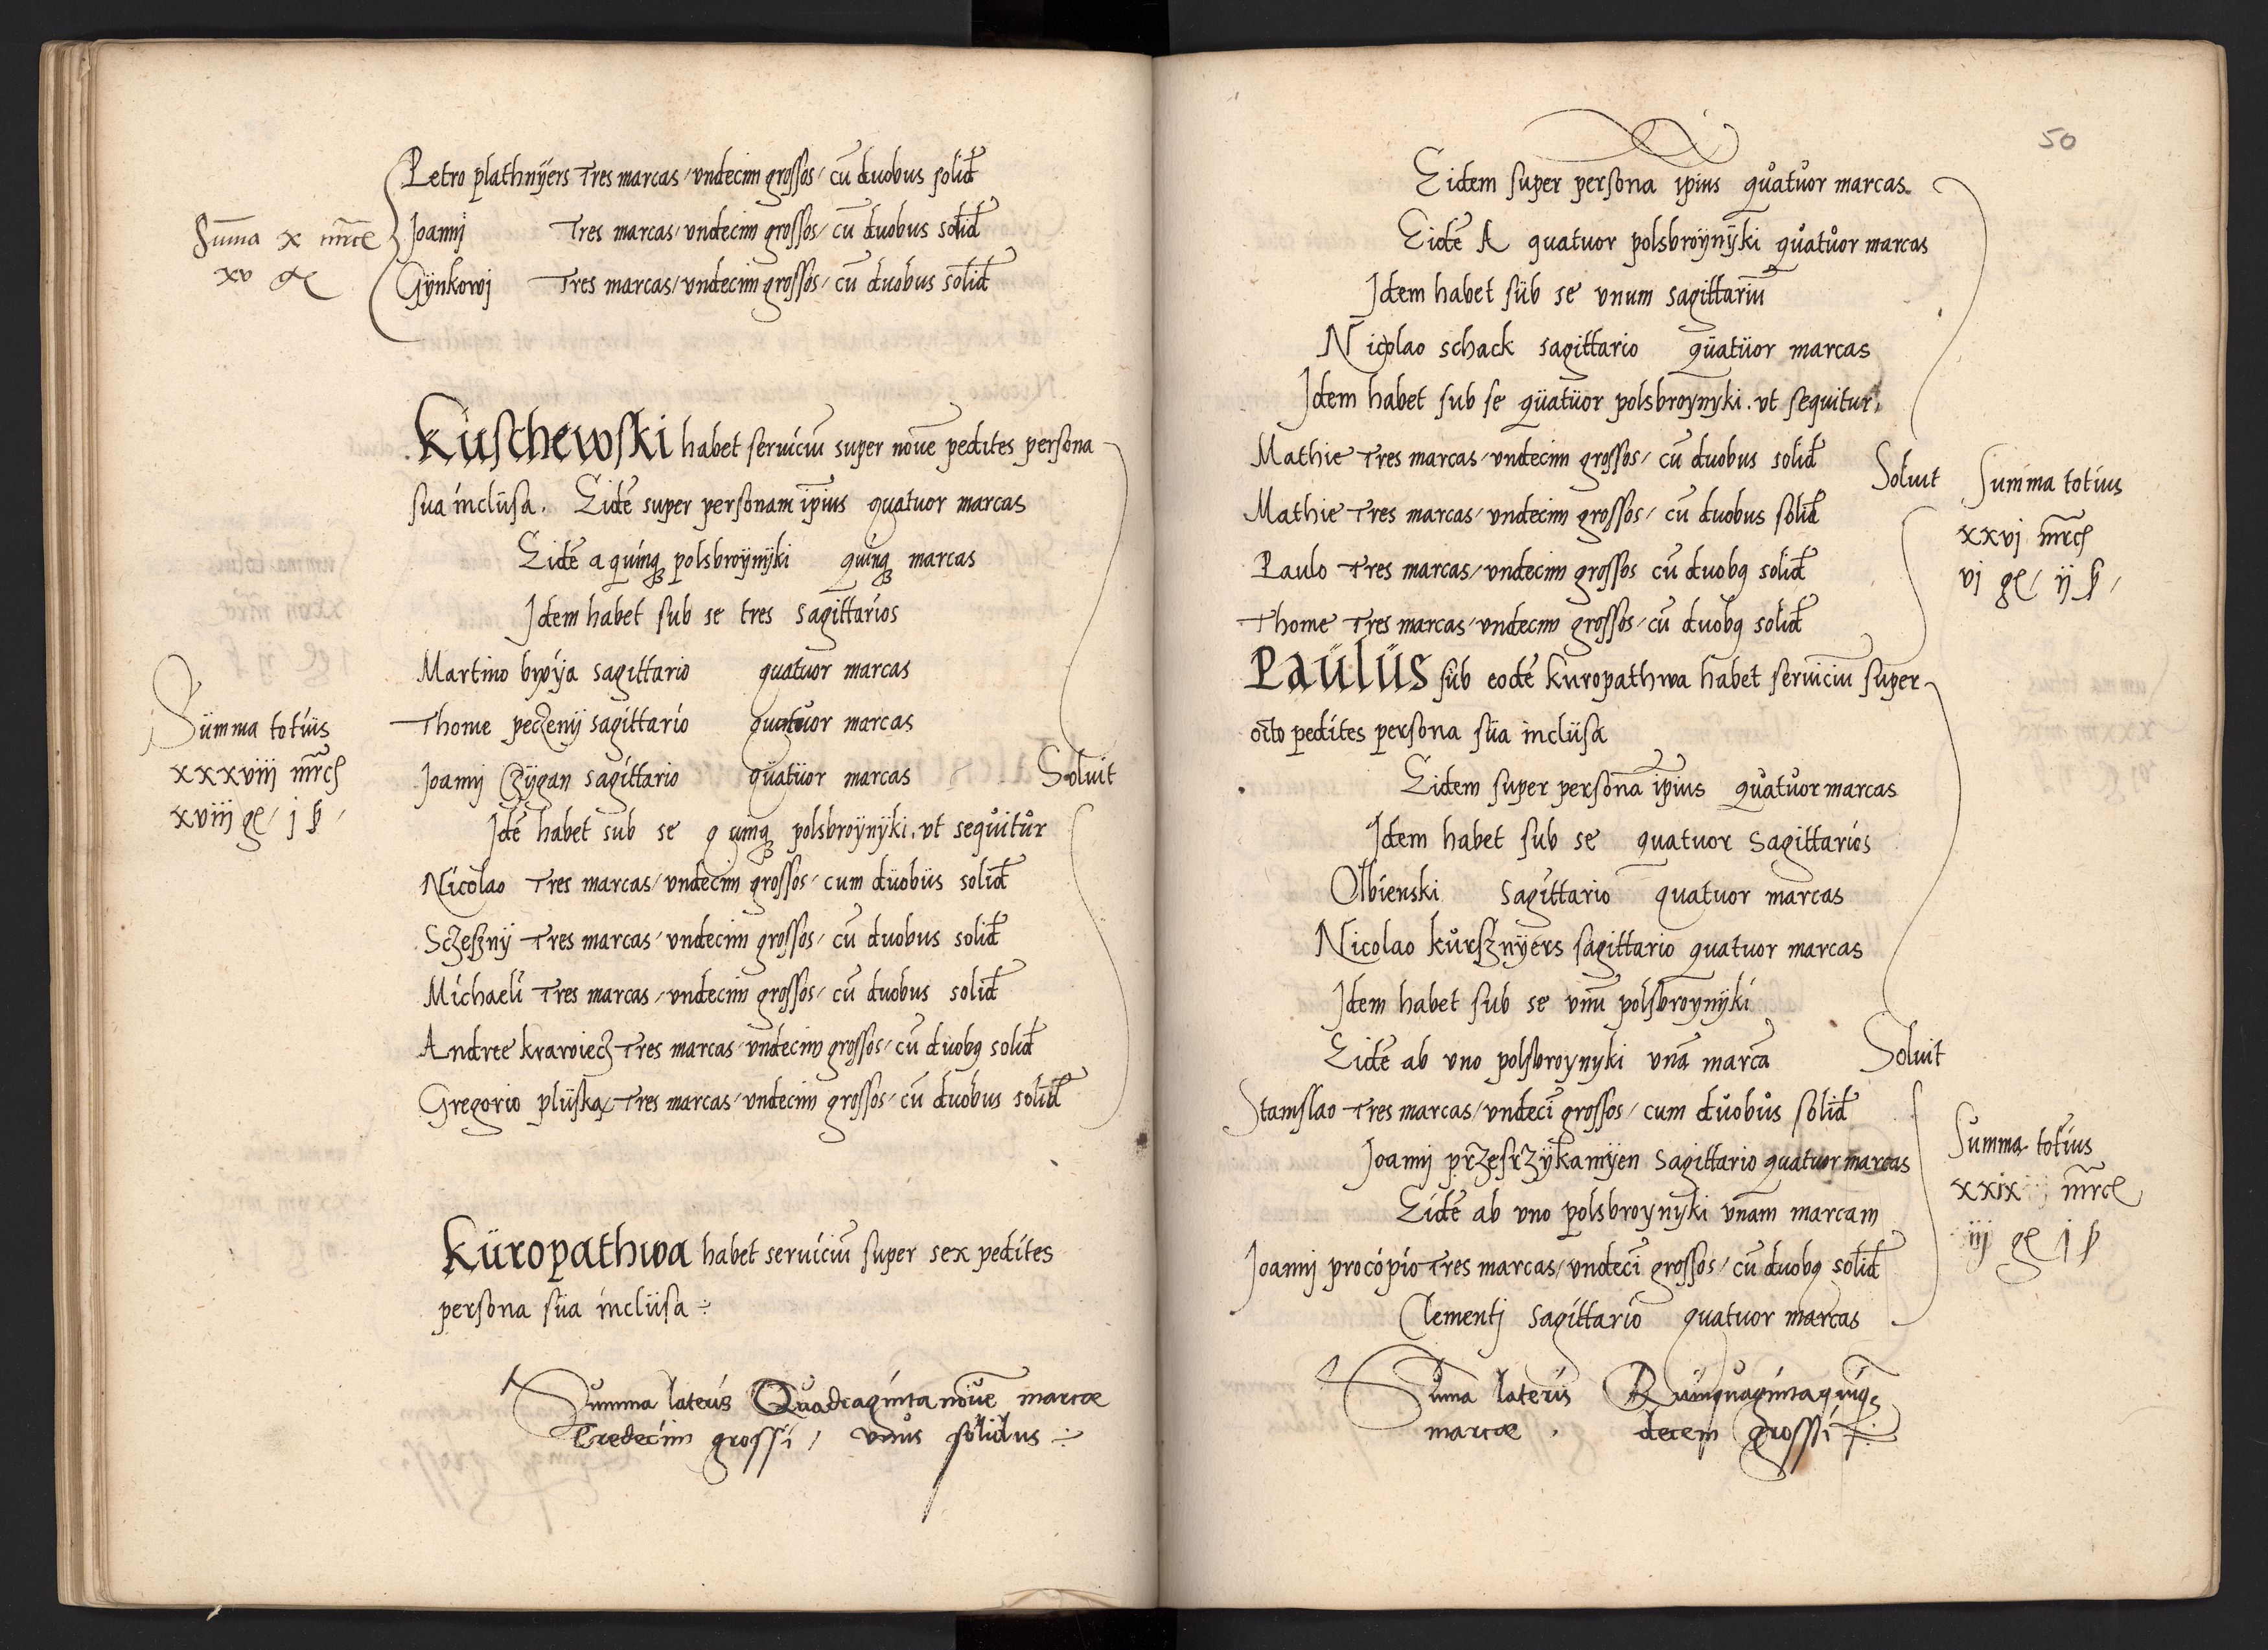 Petro plathnÿers Tres marcas / vndecim grossos / cū duobus solid
Joannj Tres marcas / vndecim grossos / cū duobus solid
Gÿnkowj Tres marcas / vndecim grossos / cū duobus solid
Sūma x mrce
xv g
Kuschewski habet seruiciū super nouē pedites persona
sua inclusa. Eidē super personam ip̄ius quatuor marcas
Eidē a quinqꝫ polsbroÿnÿki quinqꝫ marcas
Jdem habet sub se tres sagittarios
Martino bwÿa sagittario quatuor marcas
Thome peczenÿ sagittario quatuor marcas
Joannj Czÿgan sagittario quatuor marcas
Soluit
Jdē habet sub se quinqꝫ polsbroÿnÿki. vt sequitur
Nicolao Tres marcas / vndecim grossos / cum duobus solid
Sczesznÿ Tres marcas / vndecim grossos / cū duobus solid
Michaeli Tres marcas / vndecim grossos / cū duobus solid
Andree krawiecz Tres marcas / vndecim grossos / cū duobꝰ solid
Gregorio pluska Tres marcas / vndecim grossos / cū duobus solid
Summa totius
xxxviij mrc
xviij g / j ꝑ /
Kuropathwa habet seruiciū super sex pedites
persona sua inclusa
Summa lateris Quadraginta nouē marcæ
Tredecim grossi / vnus solidus
50
Eidem super persona ip̄ius quatuor marcas
Eidē A quatuor polsbroÿnÿki quatuor marcas
Jdem habet sub se vnum sagittariū
Nicolao schack sagittario quatuor marcas
Jdem habet sub se quatuor polsbroynyki. vt sequitur
Mathie Tres marcas / vndecim grossos / cū duobus solid
Mathie Tres marcas / vndecim grossos / cū duobus solid
Paulo Tres marcas / vndecim grossos cū duobꝰ solid
Thome Tres marcas / vndecim grossos / cū duobꝰ solid
Soluit
Summa totius
xxvj mrc
vj g / ij ꝑ /
Paulus sub eodē kuropathwa habet seruiciū super
octo pedites persona sua inclusa
Eidem super persona ip̄ius quatuor marcas
Jdem habet sub se quatuor sagittarios
Olbienski sagittario quatuor marcas
Nicolao kursznÿers sagittario quatuor marcas
Jdem habet sub se vnū polsbroynÿki
Eidē ab vno polsbroynyki vnā marcā
Soluit
Stanislao Tres marcas / vndecī grossos / cum duobus solid
Joannj przesrzÿkamÿen sagittario quatuor marcas
Eidē ab vno polsbroynÿki vnam marcam
Joannj procopio Tres marcas / vndecī grossos / cū duobꝰ solid
Clementj sagittario quatuor marcas
Summa totius
xxix mrc
iij g j ꝑ
Sūma lateris Quinquaginta quinqꝫ
marcæ. decem grossi